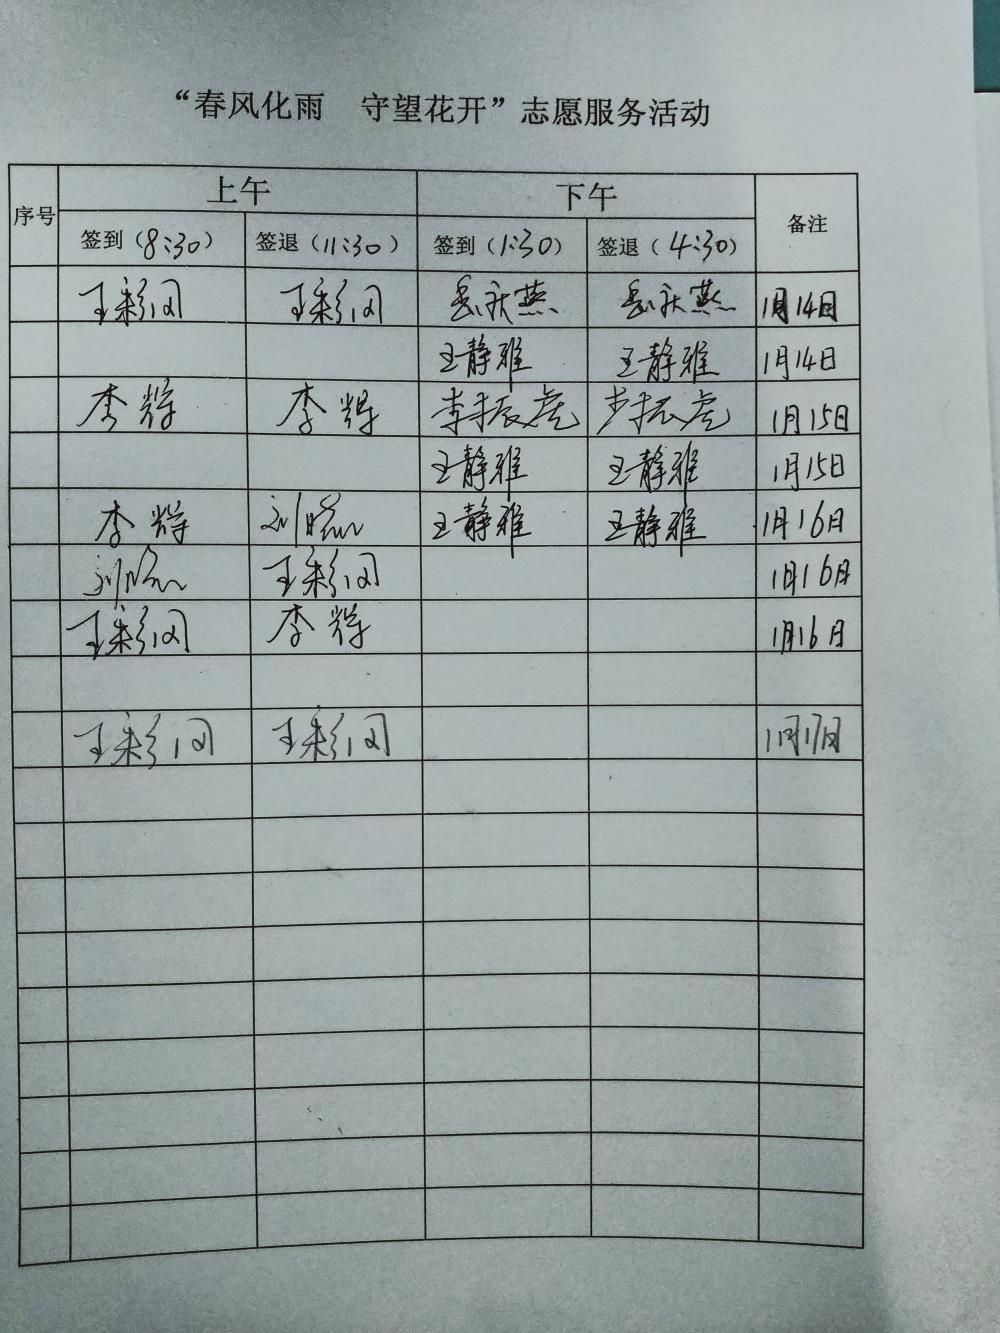 “春风化雨 守望花开”志愿服务活动
序号 上午 下午 备注
签到（8:30） 签退（11:30） 签到（1:30） 签退（4:30）
王彩闪 王彩闪 岳秋燕 岳秋燕 1月14日
王静雅 王静雅 1月14日
李辉 李辉 李振虎 李振虎 1月15日
王静雅 王静雅 1月15日
李辉 刘晓 王静雅 王静雅 1月16日
刘晓 王彩闪 1月16日
王彩闪 李辉 1月16日
王彩闪 王彩闪 1月17日